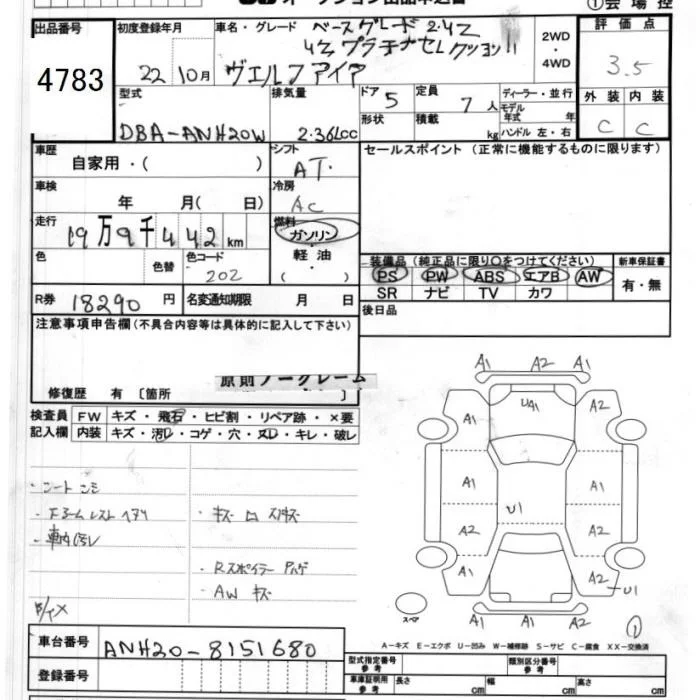 ①会場控
出品番号
4783
初度登録年月
22 10月
車名・グレード ベースグレード 2.4Z
4Z プラチナセレクションⅡ
ヴェルファイア
2WD
・
4WD
評価点
3.5
外装 内装
C C
型式
DBA-ANH20W
排気量
2.36Lcc
ドア 5
形状
定員 7人
積載 kg
ディーラー・並行
モデル年式 年
ハンドル 左・右
車歴
自家用・( )
シフト
AT
セールスポイント (正常に機能するものに限ります)
車検
年 月( 日)
冷房
AC
走行
19万9千442km
燃料
ガソリン
軽油
( )
色
色替
色コード
202
装備品 (純正品に限り○をつけてください)
PS PW ABS エアB AW
SR ナビ TV カワ
新車保証書
有・無
R券 18290円
名変通知期限 月 日
後日品
注意事項申告欄(不具合内容等は具体的に記入して下さい)
原則ノークレーム
修復歴 有 〔箇所 〕
検査員 FW キズ・飛石・ヒビ割・リペア跡・×要
記入欄 内装 キズ・汚レ・コゲ・穴・ヌレ・キレ・破レ
・車内汚レ
・Rスポイラー ハゲ
・AW キズ
A1 A2 A1
A1 UA1 A2
A1 A1
U1
A2 A2
A1 A2 U1
A1 A1 A2
スペア
①
A-キズ E-エクボ U-凹み W-補修跡 S-サビ C-腐食 XX-交換済
車台番号 ANH20-8151680
登録番号
型式指定番号
参考
類別区分番号
参考
車庫証明用
参考
長さ cm 幅 cm 高さ cm